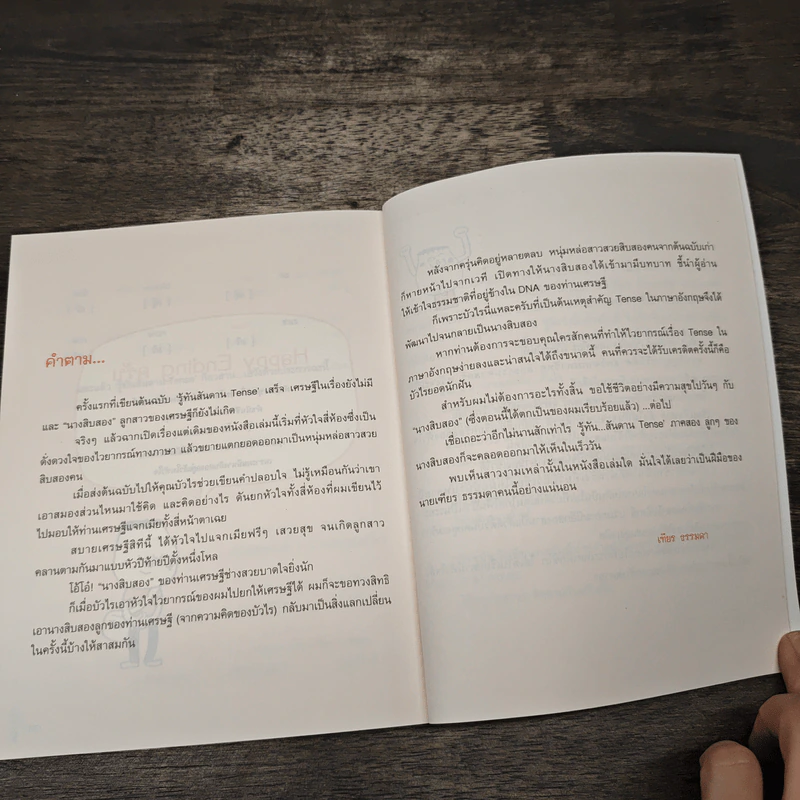 คำตาม...
ครั้งแรกที่เขียนต้นฉบับ ‘รู้ทันสันดาน Tense’ เสร็จ เศรษฐีในเรื่องยังไม่มี
และ “นางสิบสอง” ลูกสาวของเศรษฐีก็ยังไม่เกิด
จริงๆ แล้วฉากเปิดเรื่องแต่เดิมของหนังสือเล่มนี้เริ่มที่หัวใจสี่ห้องซึ่งเป็น
ดั่งดวงใจของไวยากรณ์ทางภาษา แล้วขยายแตกยอดออกมาเป็นหนุ่มหล่อสาวสวย
สิบสองคน
เมื่อส่งต้นฉบับไปให้คุณบัวไรช่วยเขียนคำปลอบใจ ไม่รู้เหมือนกันว่าเขา
เอาสมองส่วนไหนมาใช้คิด และคิดอย่างไร ดันยกหัวใจทั้งสี่ห้องที่ผมเขียนไว้
ไปมอบให้ท่านเศรษฐีแจกเมียทั้งสี่หน้าตาเฉย
สบายเศรษฐีสิทีนี้ ได้หัวใจไปแจกเมียฟรีๆ เสวยสุข จนเกิดลูกสาว
คลานตามกันมาแบบหัวปีท้ายปีตั้งหนึ่งโหล
โอ้โอ๋! “นางสิบสอง” ของท่านเศรษฐีช่างสวยบาดใจยิ่งนัก
ก็เมื่อบัวไรเอาหัวใจไวยากรณ์ของผมไปยกให้เศรษฐีได้ ผมก็จะขอทวงสิทธิ
เอานางสิบสองลูกของท่านเศรษฐี (จากความคิดของบัวไร) กลับมาเป็นสิ่งแลกเปลี่ยน
ในครั้งนี้บ้างให้สาสมกัน
หลังจากครุ่นคิดอยู่หลายตลบ หนุ่มหล่อสาวสวยสิบสองคนจากต้นฉบับเก่า
ก็หายหน้าไปจากเวที เปิดทางให้นางสิบสองได้เข้ามามีบทบาท ชี้นำผู้อ่าน
ให้เข้าใจธรรมชาติที่อยู่ข้างใน DNA ของท่านเศรษฐี
ก็เพราะบัวไรนี่แหละครับที่เป็นต้นเหตุสำคัญ Tense ในภาษาอังกฤษจึงได้
พัฒนาไปจนกลายเป็นนางสิบสอง
หากท่านต้องการจะขอบคุณใครสักคนที่ทำให้ไวยากรณ์เรื่อง Tense ใน
ภาษาอังกฤษง่ายลงและน่าสนใจได้ถึงขนาดนี้ คนที่ควรจะได้รับเครดิตครั้งนี้ก็คือ
บัวไรยอดนักฝัน
สำหรับผมไม่ต้องการอะไรทั้งสิ้น ขอใช้ชีวิตอย่างมีความสุขไปวันๆ กับ
“นางสิบสอง” (ซึ่งตอนนี้ได้ตกเป็นของผมเรียบร้อยแล้ว) ...ต่อไป
เชื่อเถอะว่าอีกไม่นานสักเท่าไร ‘รู้ทัน...สันดาน Tense’ ภาคสอง ลูกๆ ของ
นางสิบสองก็จะคลอดออกมาให้เห็นในเร็ววัน
พบเห็นสาวงามเหล่านั้นในหนังสือเล่มใด มั่นใจได้เลยว่าเป็นฝีมือของ
นายเฑียร ธรรมดาคนนี้อย่างแน่นอน
เฑียร ธรรมดา